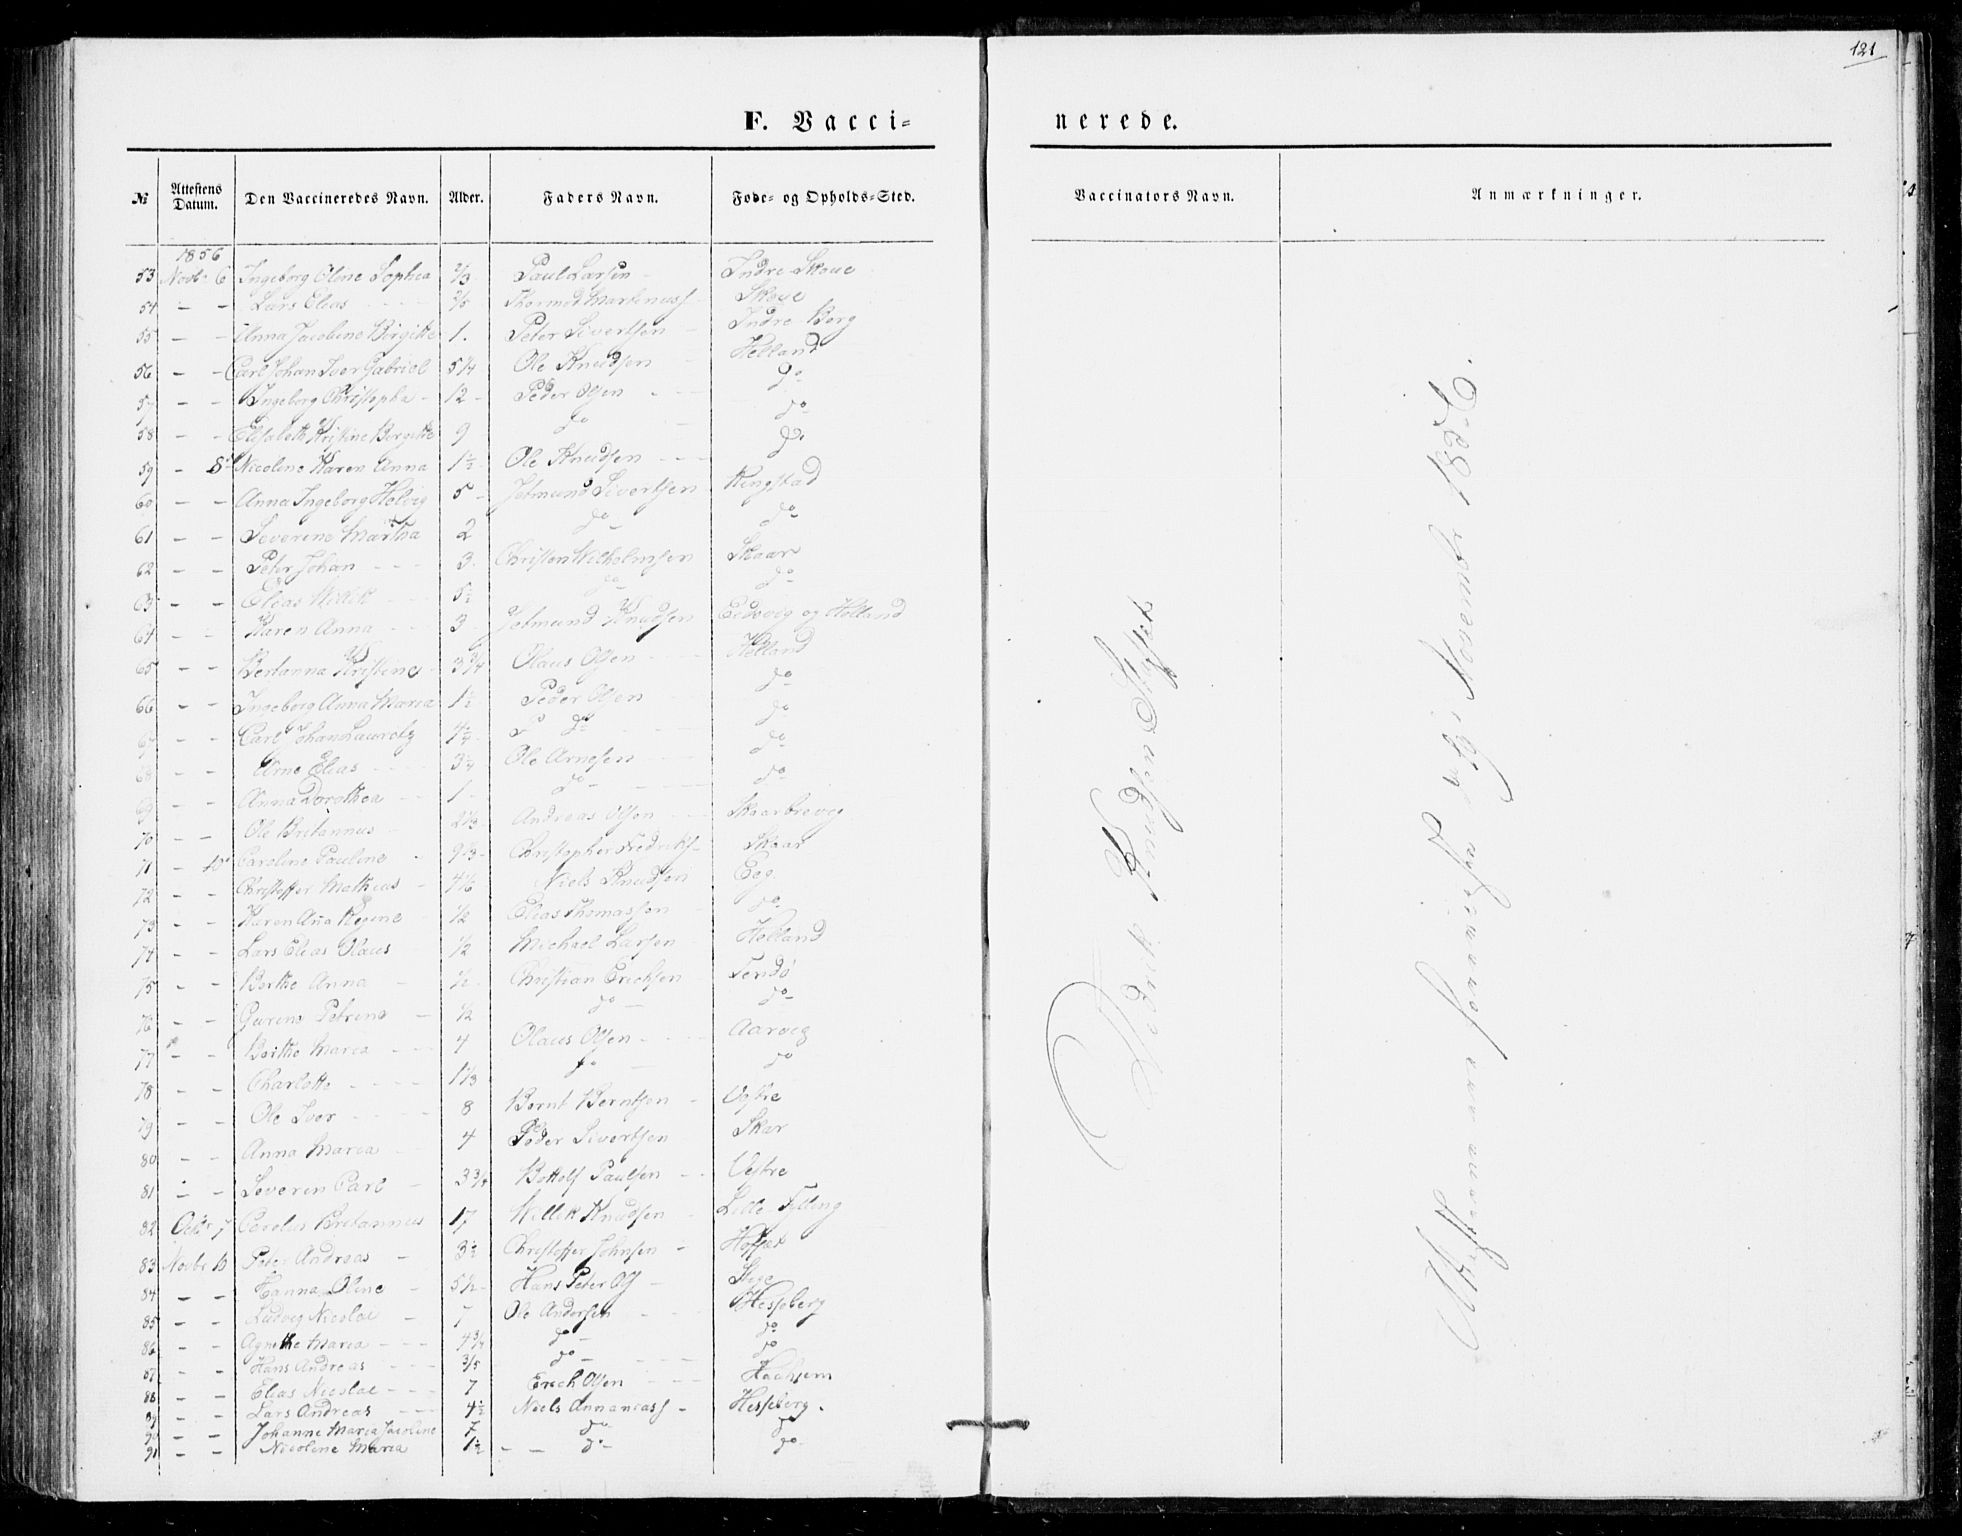 121
F. Vacci=
nerede.
№ Attestens Datum. Den Vaccineredes Navn. Alder. Faders Navn. Føde= og Opholds=Sted. Vaccinators Navn. Anmærkninger.
1856
53 Novbr 6 Ingeborg Oline Sophia 2/3 Paul Larsen Indre Skoue
54 - - Lars Elias Skoue
55 - - Anna Jacobine Birgitte 1. Peter Sivertsen Indre Berg
56 - - Carl Johan Iver Gabriel 5 1/4 Ole Knudsen Helland
57 - - Ingeborg Christopha 12 Peder Olsen do
58 - - Elisabeth Kristine Bergitte 9 do do
59 - 8 Nicoline Karen Anna 1½ Ole Knudsen do
60 - - Anna Ingeborg Helvig 5 Jetmund Sivertsen Ringstad
61 - - Severine Martha 2 do do
62 - - Peter Johan 3 Christen Wilhelmsen Skaar
63 - - Elias Willik 5½ do do
64 - - Karen Anna 3 Jetmund Knudsen Eidsvig og Helland
65 - - Bertanna Kristine 3 3/4 Olaus Olsen Helland
66 - - Ingeborg Anna Maria 1½ Peder Olsen do
67 - - Carl Johan Lauritz do do
68 - - Arne Elias 3 1/4 Ole Arnesen do
69 - - Anna Dorothea 1 do do
70 - - Ole Britannus 2 1/3 Andreas Olsen Skaarbrevig
71 - 10 Caroline Pauline 9 1/3 Christopher Fredriks Skaar
72 - - Christoffer Mathias 4 1/6 Niels Knudsen Eeg
73 - - Karen Ana Regine ½ Elias Thomassen do
74 - - Lars Elias Olaus ½ Michael Larsen Helland
75 - - Berthe Anna ½ Christian Erichsen Terdø
76 - - Gurine Petrine ½ do do
77 - - Berthe Maria 4 Olaus Olsen Aarvig
78 - - Charlotte 1 1/3 do do
79 - - Ole Iver 8 Bernt Berntsen Vestre
80 - - Anna Maria 4 Peder Sivertsen Skar
81 - - Severin Carl 3 3/4 Bottolf Paulsen Vestre
82 Octbr 7 Carolus Britannus 17 Willik Knudsen Lille Filling
83 Novbr 10 Peter Andreas 3½ Christoffer Johnsen Hofset
84 - - Hanna Oline 5½ Hans Peter Ols Stege
85 - - Ludvig Nicolai 7 Ole Andersen Hessberg
86 - - Agnethe Maria 4 3/4 do do
87 - - Hans Andreas 3/5 do do
88 - - Elias Nicolai 7 Erich Olsen
89 - - Lars Andreas 4½ Niels Annaniass Hessberg.
90 - - Johanne Maria Jacobine 7 do do
91 - - Nicoline Maria 1½ - - do do
Didrik Knudsen Hofset
Attesterne ere foreviist Mig i Novembr 1856.